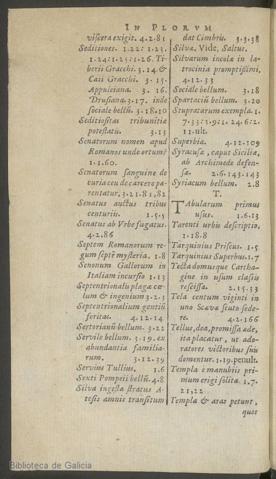 IN FLORVM
viscera exigit. 4.2.81
Seditiones. 1.22: 1.23.
1.24: 1.25: 1.26. Ti-
berii Gracchi. 3.14. &
Caii Gracchi. 3.15.
Appuleiana. 3.16.
Drusiana. 3.17. inde
sociale bellũ. 3.18.10
Seditiositas tribunitiæ
potestatis. 3.13
Senatorum nomen apud
Romanos unde ortum?
1.1.60.
Senatorum sanguine de
curia eu decerpere pa-
rentatur. 3.21.81.82
Senatus auctus tribus
centuriis. 1.5.5
Senatus ab Vrbe fugatus.
4.2.86
Septem Romanorum re-
gum septẽ mysteria. 1.8
Senonum Gallorum in
Italiam incursio 1.13
Septentrionalis plaga cæ-
lum & ingenium 3.2.3
Septentrionalium gentiũ
feritas. 4.12.14
Sertorianũ bellum. 3.22
Servile bellum. 3.19. ex
abundantia familia-
rum. 3.12.39
Servius Tullius. 1.6
Sexti Pompeii bellũ. 4.8
Silva ingesta stratus A-
tesis amnis transitum
dat Cimbris. 3.3.38
Silva. Vide, Saltus.
Silvarum incolæ in la-
trocinia promptissimi.
4.12.33
Sociale bellum. 3.18
Spartaciũ bellum. 3.20
Stupratarum exempla. 1.
7.33: 1.9: 1.24.6: 2.
11. ult.
Superbia. 4.12.109
Syracusæ, caput Siciliæ,
ab Archimede defen-
sæ. 2.6.143.143
Syriacum bellum. 2.8
T.
TAbularum primus
usus. 1.6.13
Tarenti urbis descriptio.
1.18.8
Tarquinius Priscus. 1.5
Tarquinius Superbus. 1.7
Tecta domusque Cartha-
gine in usum classis
rescissa. 2.15.33
Tela centum viginti in
uno Scævæ scuto sede-
re. 4.2.166
Tellus, dea, promissa æde,
ita placatur, ut ado-
ratores victoribus suis
domentur. 1.19. penult.
Templa è manubiis pri-
mum erigi solita. 1.7.
21.22
Templa & aras petunt,
quos
Biblioteca de Galicia